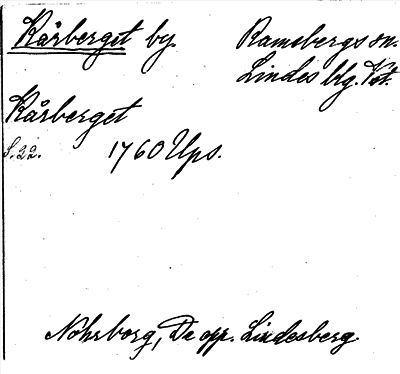 Kårberget by. Ramsbergs sn.
Lindes blg. Vst.
Kårberget
S. 22. 1760 Ups.
Nohrborg, De opp. Lindesberg